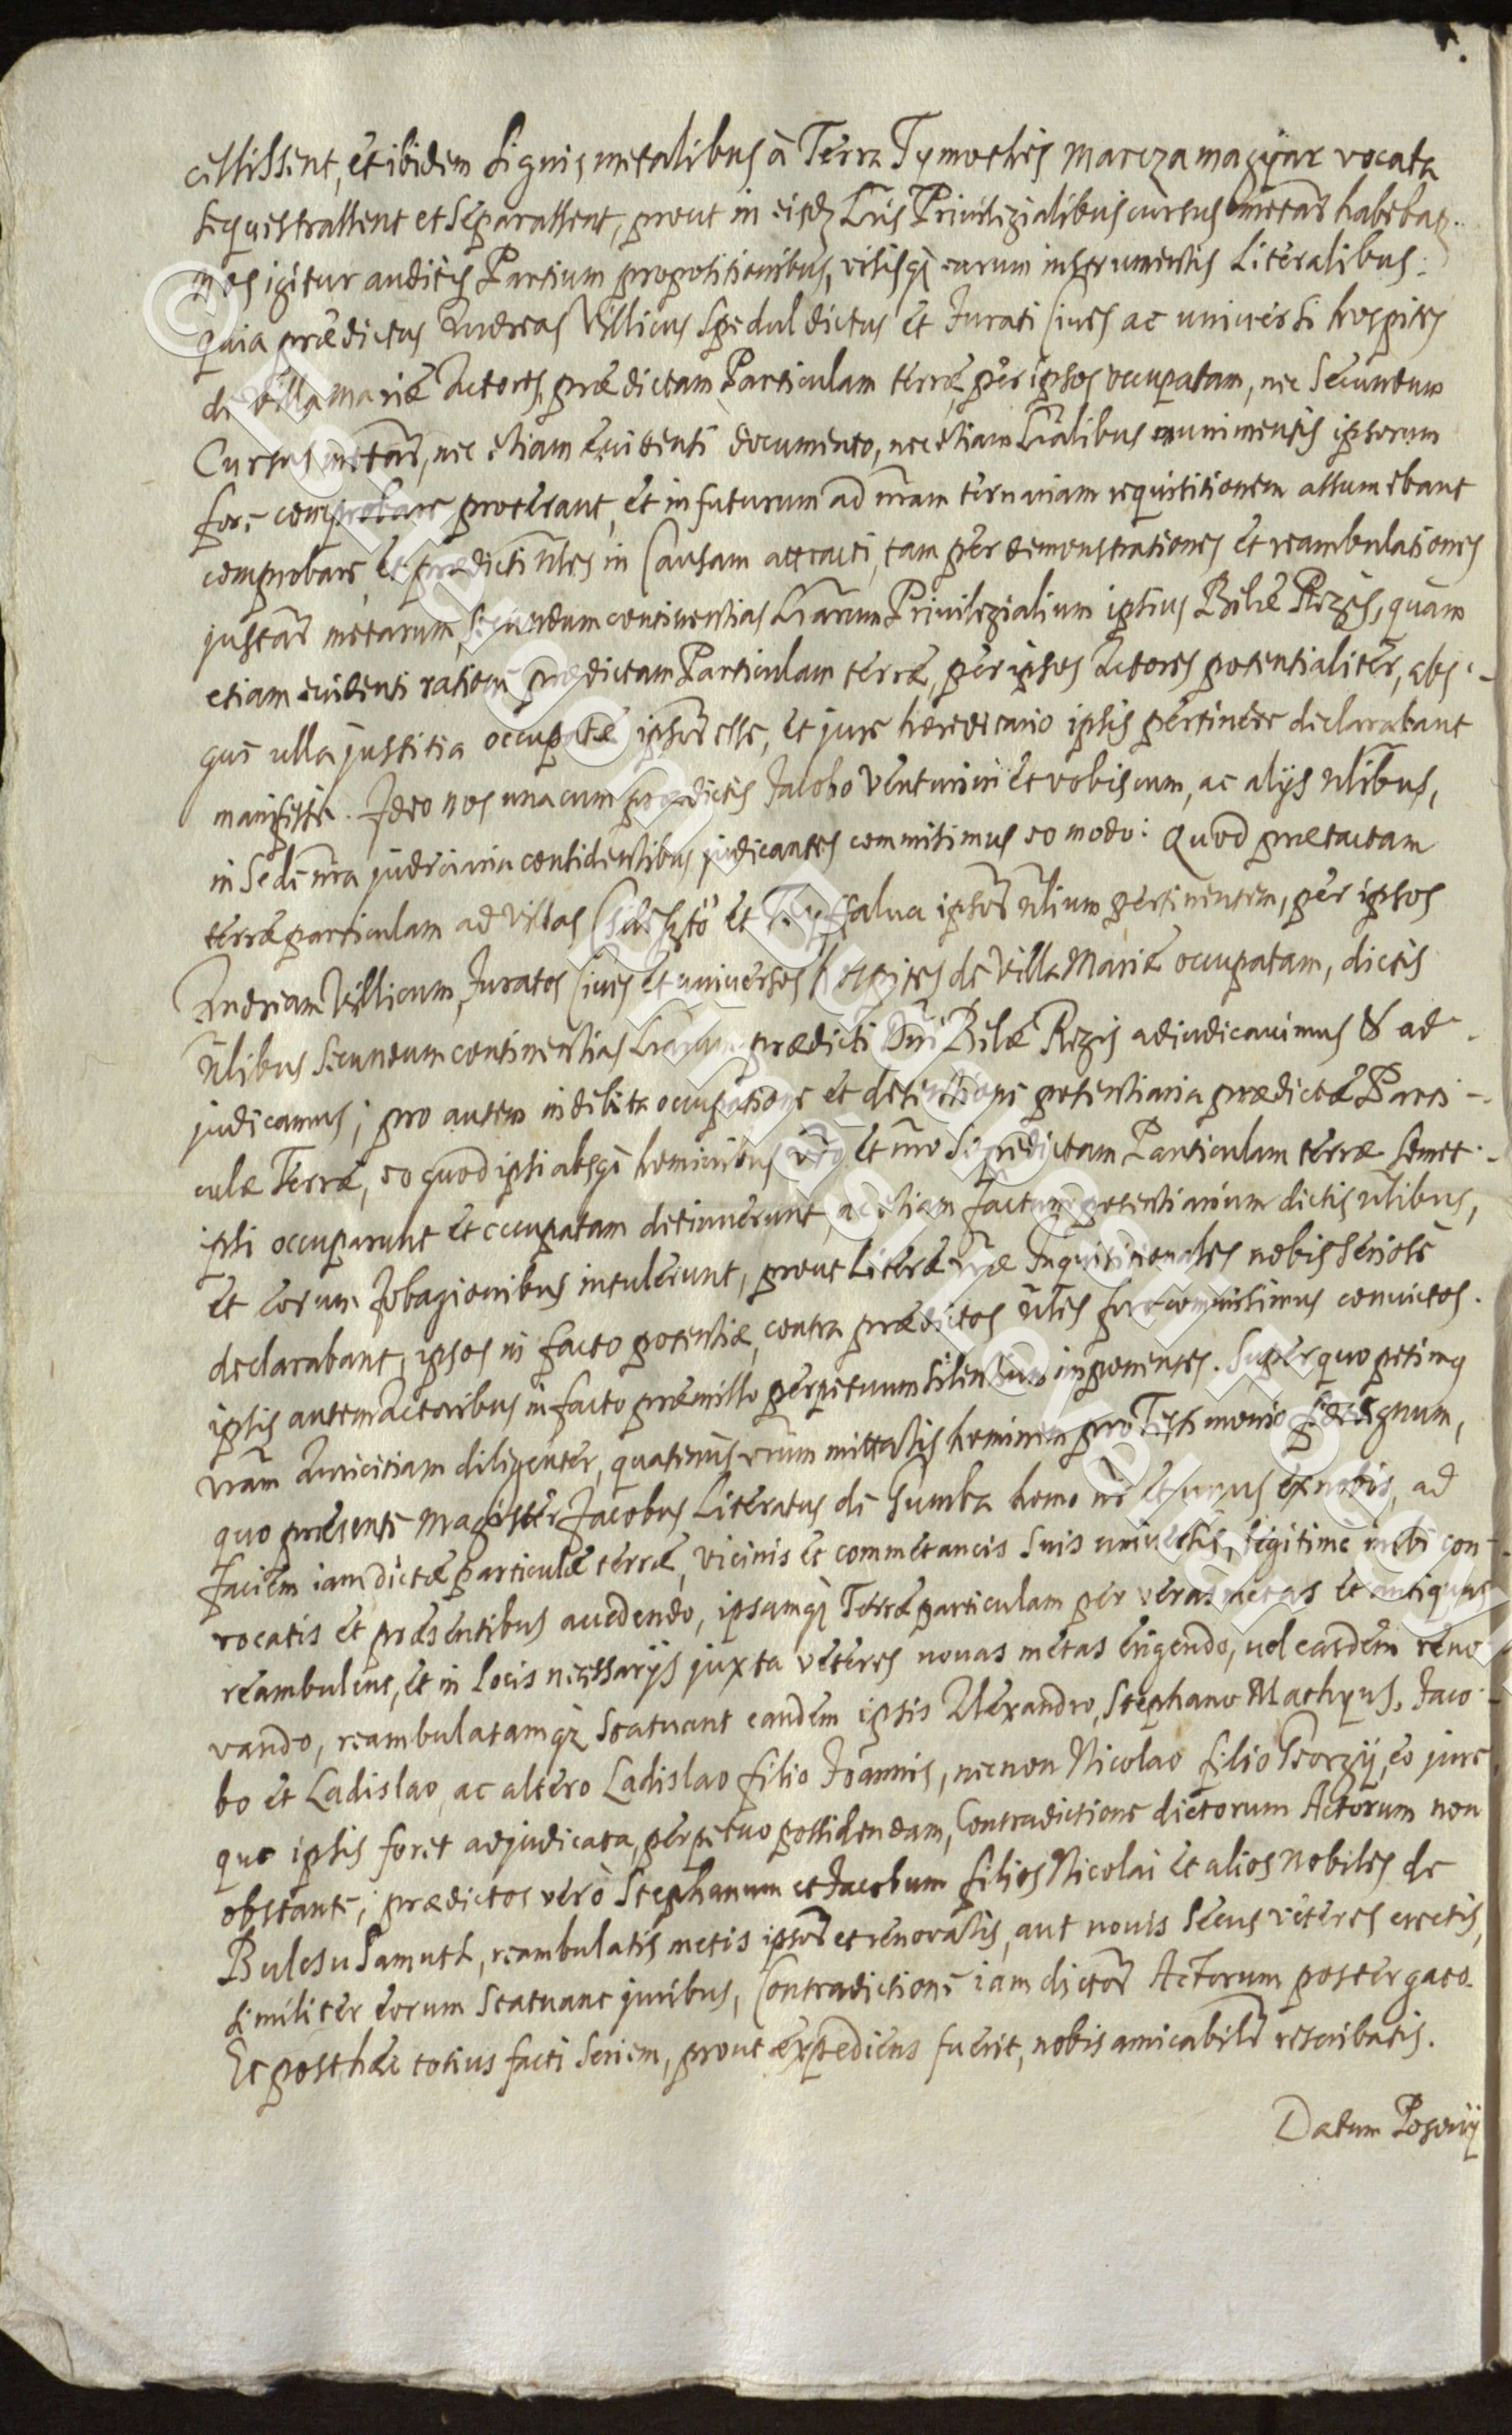 cessissent, et ibidem signis metalibus à Terra Tymotheis Marczamagyar vocata
sequestrassent et separassent, prout in eisdẽ Lris Priuilegialibus cursus metar̃ habebat.
nos igitur auditis Partium propositionibus, visisq; earum instrumentis Literalibus:
quia prædictus Andreas Villicus Spedul dictus et Jurati Ciues ac uniuersi hospites
de Villa Mariæ Actores, prædictam Particulam terræ, per ipsos occupatam, nec secundum
Cursus metar̃, nec etiam euidenti documento, nec etiam Lr̃alibus munimentis ipsorum
fore comprobare poterant, et in futurum ad nr̃am ternariam requisitionem assumebant
comprobare, et prædicti Nles in Causam attracti, tam per demonstrationes et reambulationes
justar̃ metarum, secundum continentias Lr̃arum Priuilegialium ipsius Belæ Regis, quam
etiam euidenti ratione prædictam Particulam terræ, per ipsos Actores potentialiter, abs-
que ulla justitia occupatæ ipsor̃ esse, et jure hæreditario ipsis pertinere declarabant
manifeste. Ideo nos una cum prædictis Jacobo Venturini et vobiscum, ac alijs Nlibus,
in Sede nr̃a judiciaria considentibus judicantes commisimus eo modo: Quod prætactam
terræ particulam ad villas et ipsor̃ Nlium pertinentem, per ipsos
Andream Villicum, Juratos Ciues et uniuersos hospites de Villa Mariæ occupatam, dictis
Nlibus secundum continentias Lr̃arum prædicti Dni Belæ Regis adiudicauimus & ad-
judicamus; pro autem indebita occupatione et detentione potentiaria prædictæ Parti-
culæ Terræ, eo quod ipsi absq; hominibus vr̃o et nr̃o se prædictam Particulam terræ semet-
ipsi occuparunt et occupatam detinuerunt, ac etiam factum potentiarium dictis Nlibus,
et eorum Jobagionibus intulerunt, prout Literæ vr̃æ Inquisitionales nobis seriose
declarabant, ipsos in facto potentiæ, contra prædictos Nles fore commisimus conuictos.
ipsis autem actoribus in facto præmisso perpetuum silentium imponentes. Super quo petimus
vr̃am Amicitiam diligenter, quatenus vr̃um mittatis hominem pro Testimonio fidedignum,
quo præsente Magister Jacobus Literatus de Gumba homo nr̃ et unus ex nobis, ad
faciem iam dictæ particulæ terræ, vicinis et commetaneis suis uniuersis, legitime inibi con-
vocatis et præsentibus accedendo, ipsamq; Terræ particulam per veras metas et antiquas
reambulent, et in locis necessarijs juxta veteres nouas metas erigendo, uel easdem reno-
vando, reambulatamq; statuant eandem ipsis Alexandro, Stephano Mathyus, Jaco-
bo et Ladislao, ac altero Ladislao filio Joannis, necnon Nicolao filio Georgij, eo jure
quo ipsis foret adjudicata, perpetuo possidendam, Contradictione dictorum Actorum non
obstante; prædictos verò Stephanum et Jacobum filios Nicolai et alios Nobiles de
Bulesu Samuth, reambulatis metis ipsor̃ et renouatis, aut nouis secus veteres erectis,
similiter eorum statuant juribus, Contradictione iam dictor̃ Actorum postergato.
Et posthæc totius facti seriem, prout expediens fuerit, nobis amicabilr̃ rescribatis.
Datum Posonij